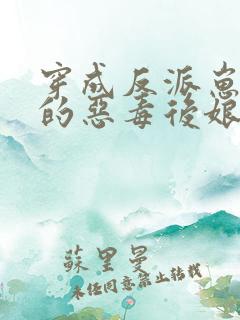 穿成反派崽
的惡毒後娘
蘇里曼
未经同意禁止转载